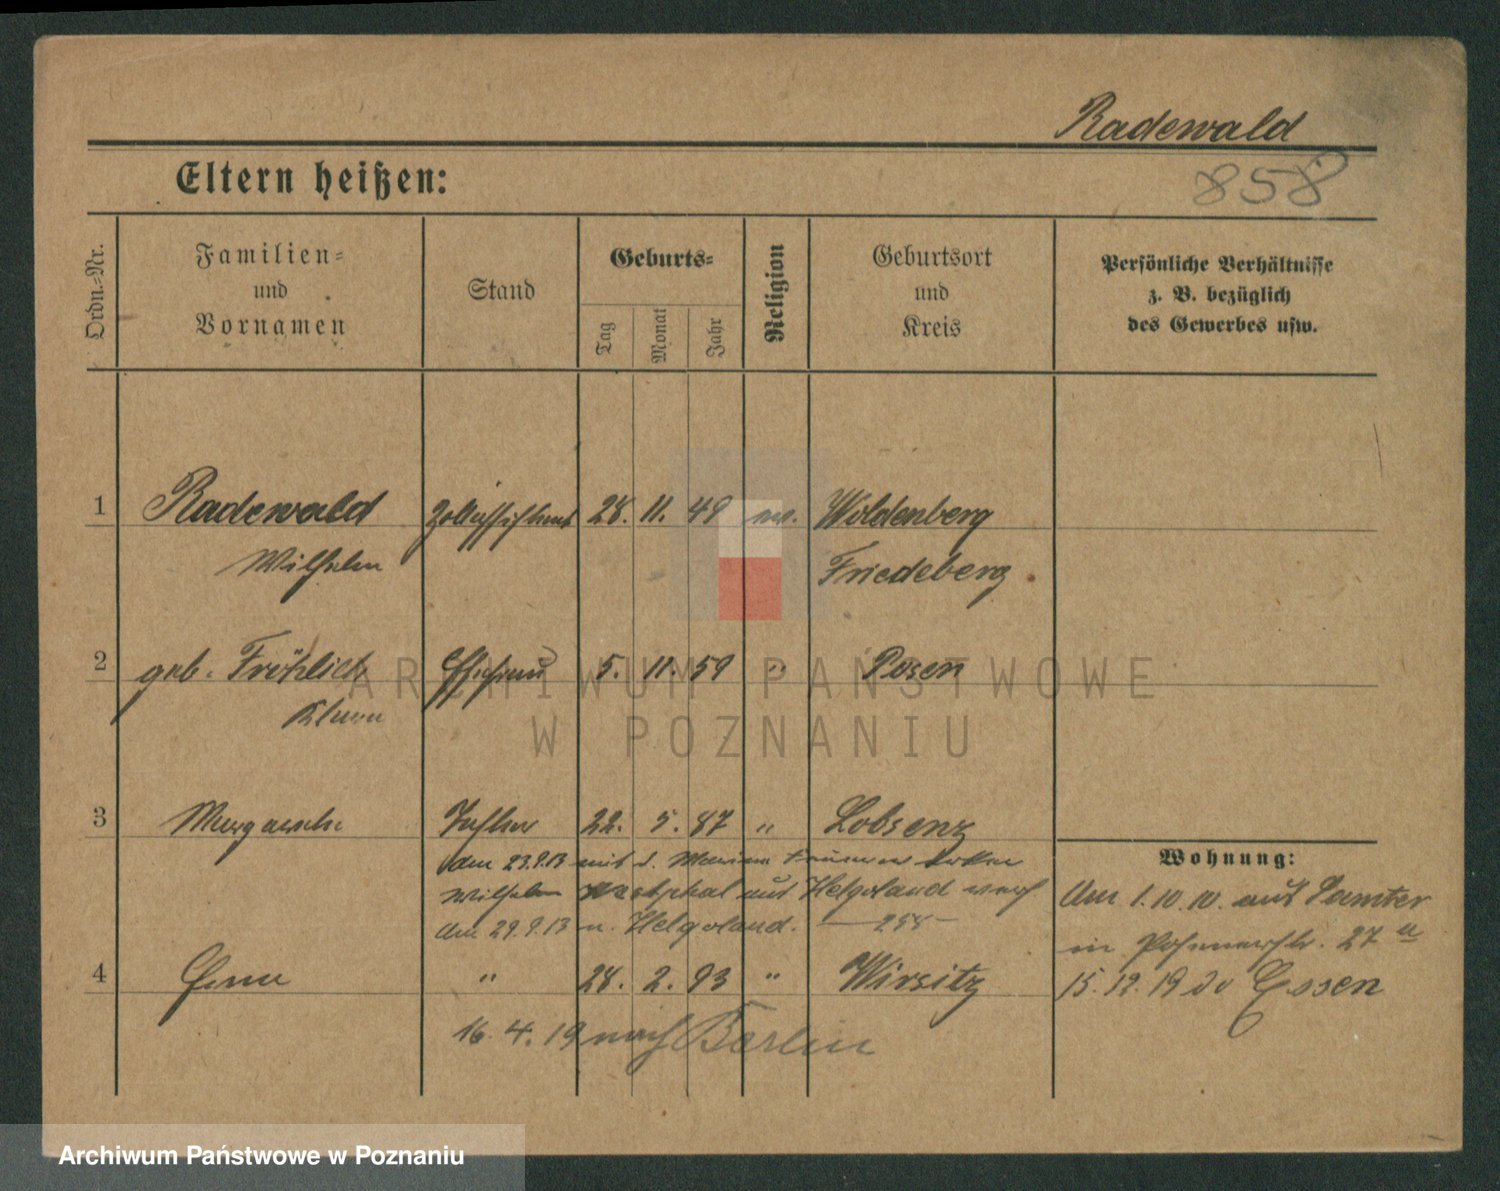 Radewald
858
Eltern heißen:
Ordn.-Nr.
Familien-
und
Vornamen
Stand
Geburts-
Tag
Monat
Jahr
Religion
Geburtsort
und
Kreis
Persönliche Verhältnisse
z. B. bezüglich
des Gewerbes usw.
1 Radewald 28. 11. 49 ev. Woldenberg
Wilhelm Friedeberg
2 geb. Fröhlich Ehefrau 5. 11. 59 " Posen
Klara
3 Margarethe Tochter 22. 5. 87 " Lobsenz
Wohnung:
den 23.9.13 mit d. Marine
Wilhelm Westphal aus Helgoland nach
den 29.9.13 n. Helgoland. — 258 —
Am 1.10.10. aus Samter
in Posenerstr. 27 a
4 Erna " 28. 2. 93 " Wirsitz
15. 12. 19 do Essen
16. 4. 19 nach Berlin
ARCHIWUM PAŃSTWOWE
W POZNANIU
Archiwum Państwowe w Poznaniu